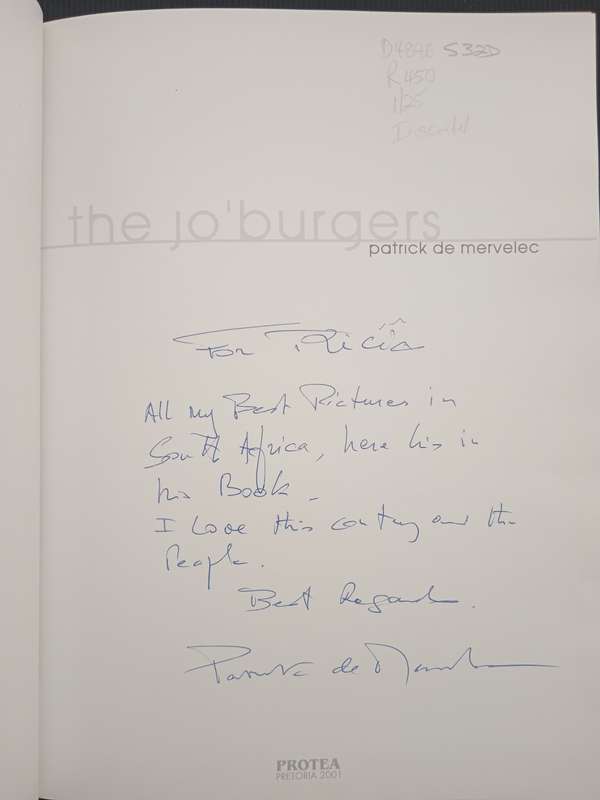 R450
1/25
the jo'burgers
patrick de mervelec
For Tricia
All my Best Pictures in
South Africa, here his in
his Book -
I Love this contry and the
People.
Best Regards.
Patrick de
PROTEA
PRETORIA 2001